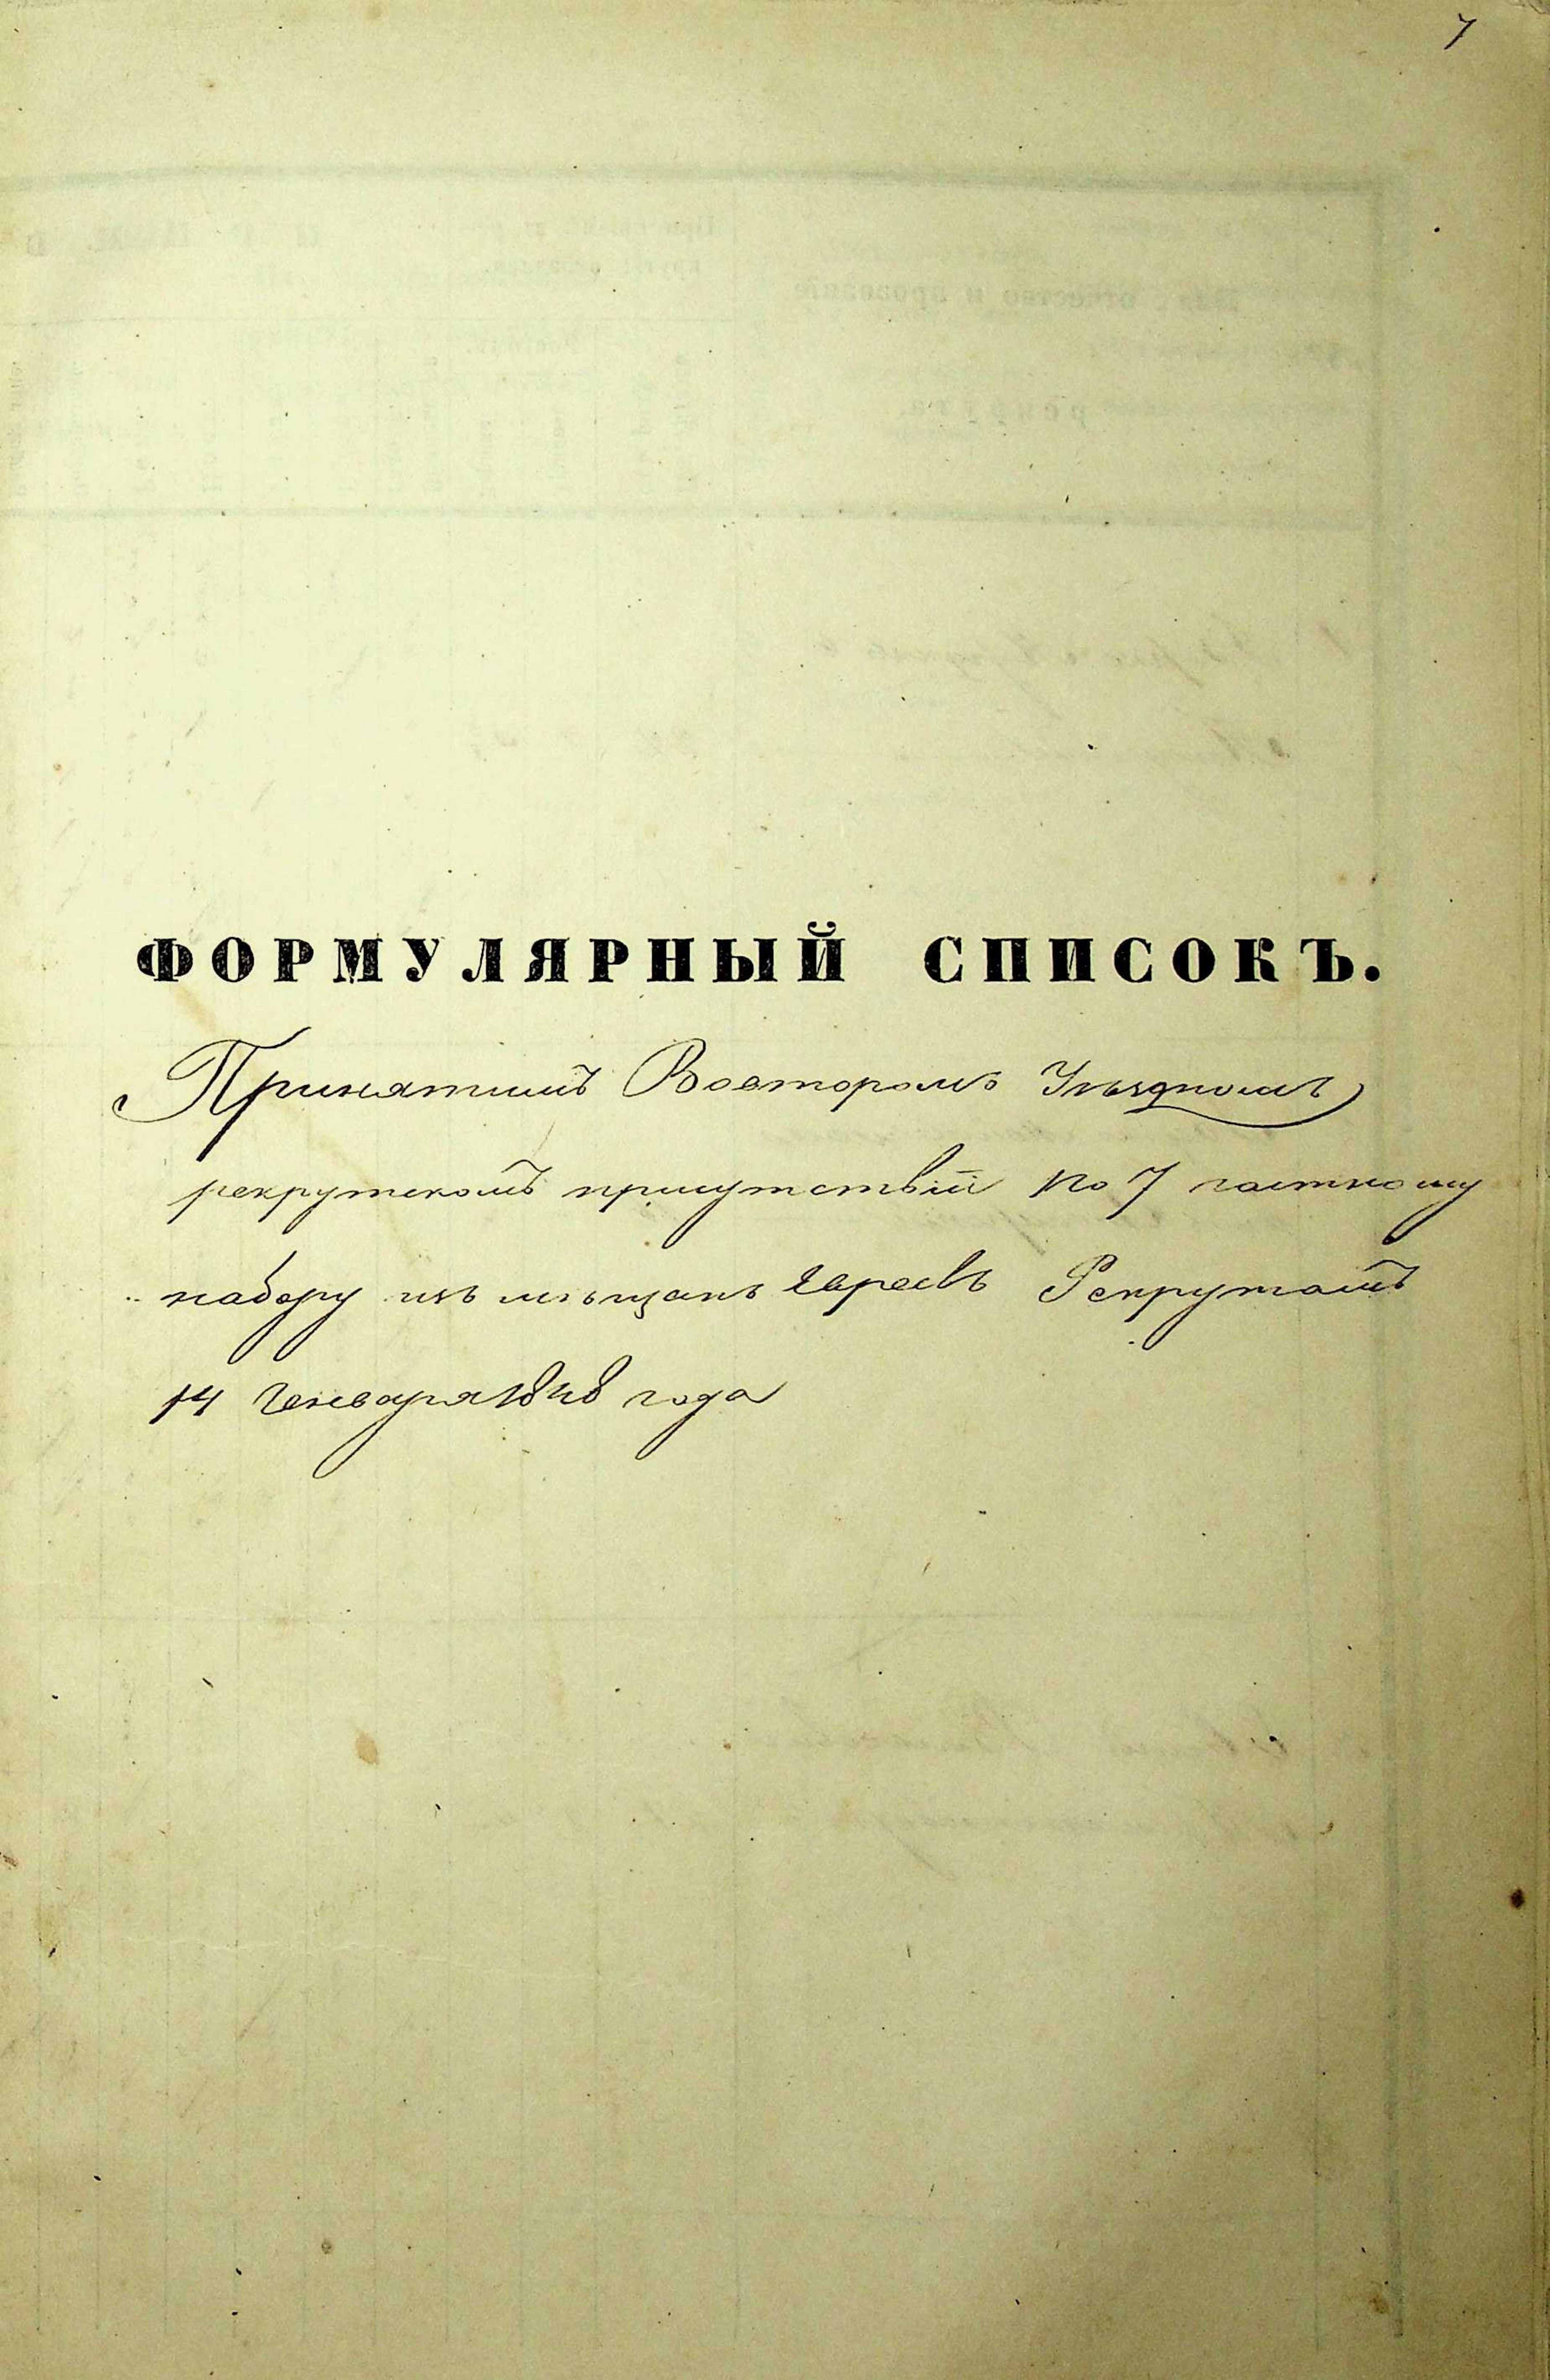 7
ФОРМУЛЯРНЫЙ СПИСОКЪ.
Принятымъ Вовторомъ Уѣздномъ
рекрутскомъ присутствіи по 7 частному
набору изъ мѣщанъ Евреевъ Рекрутамъ
14 Генваря 1848 года